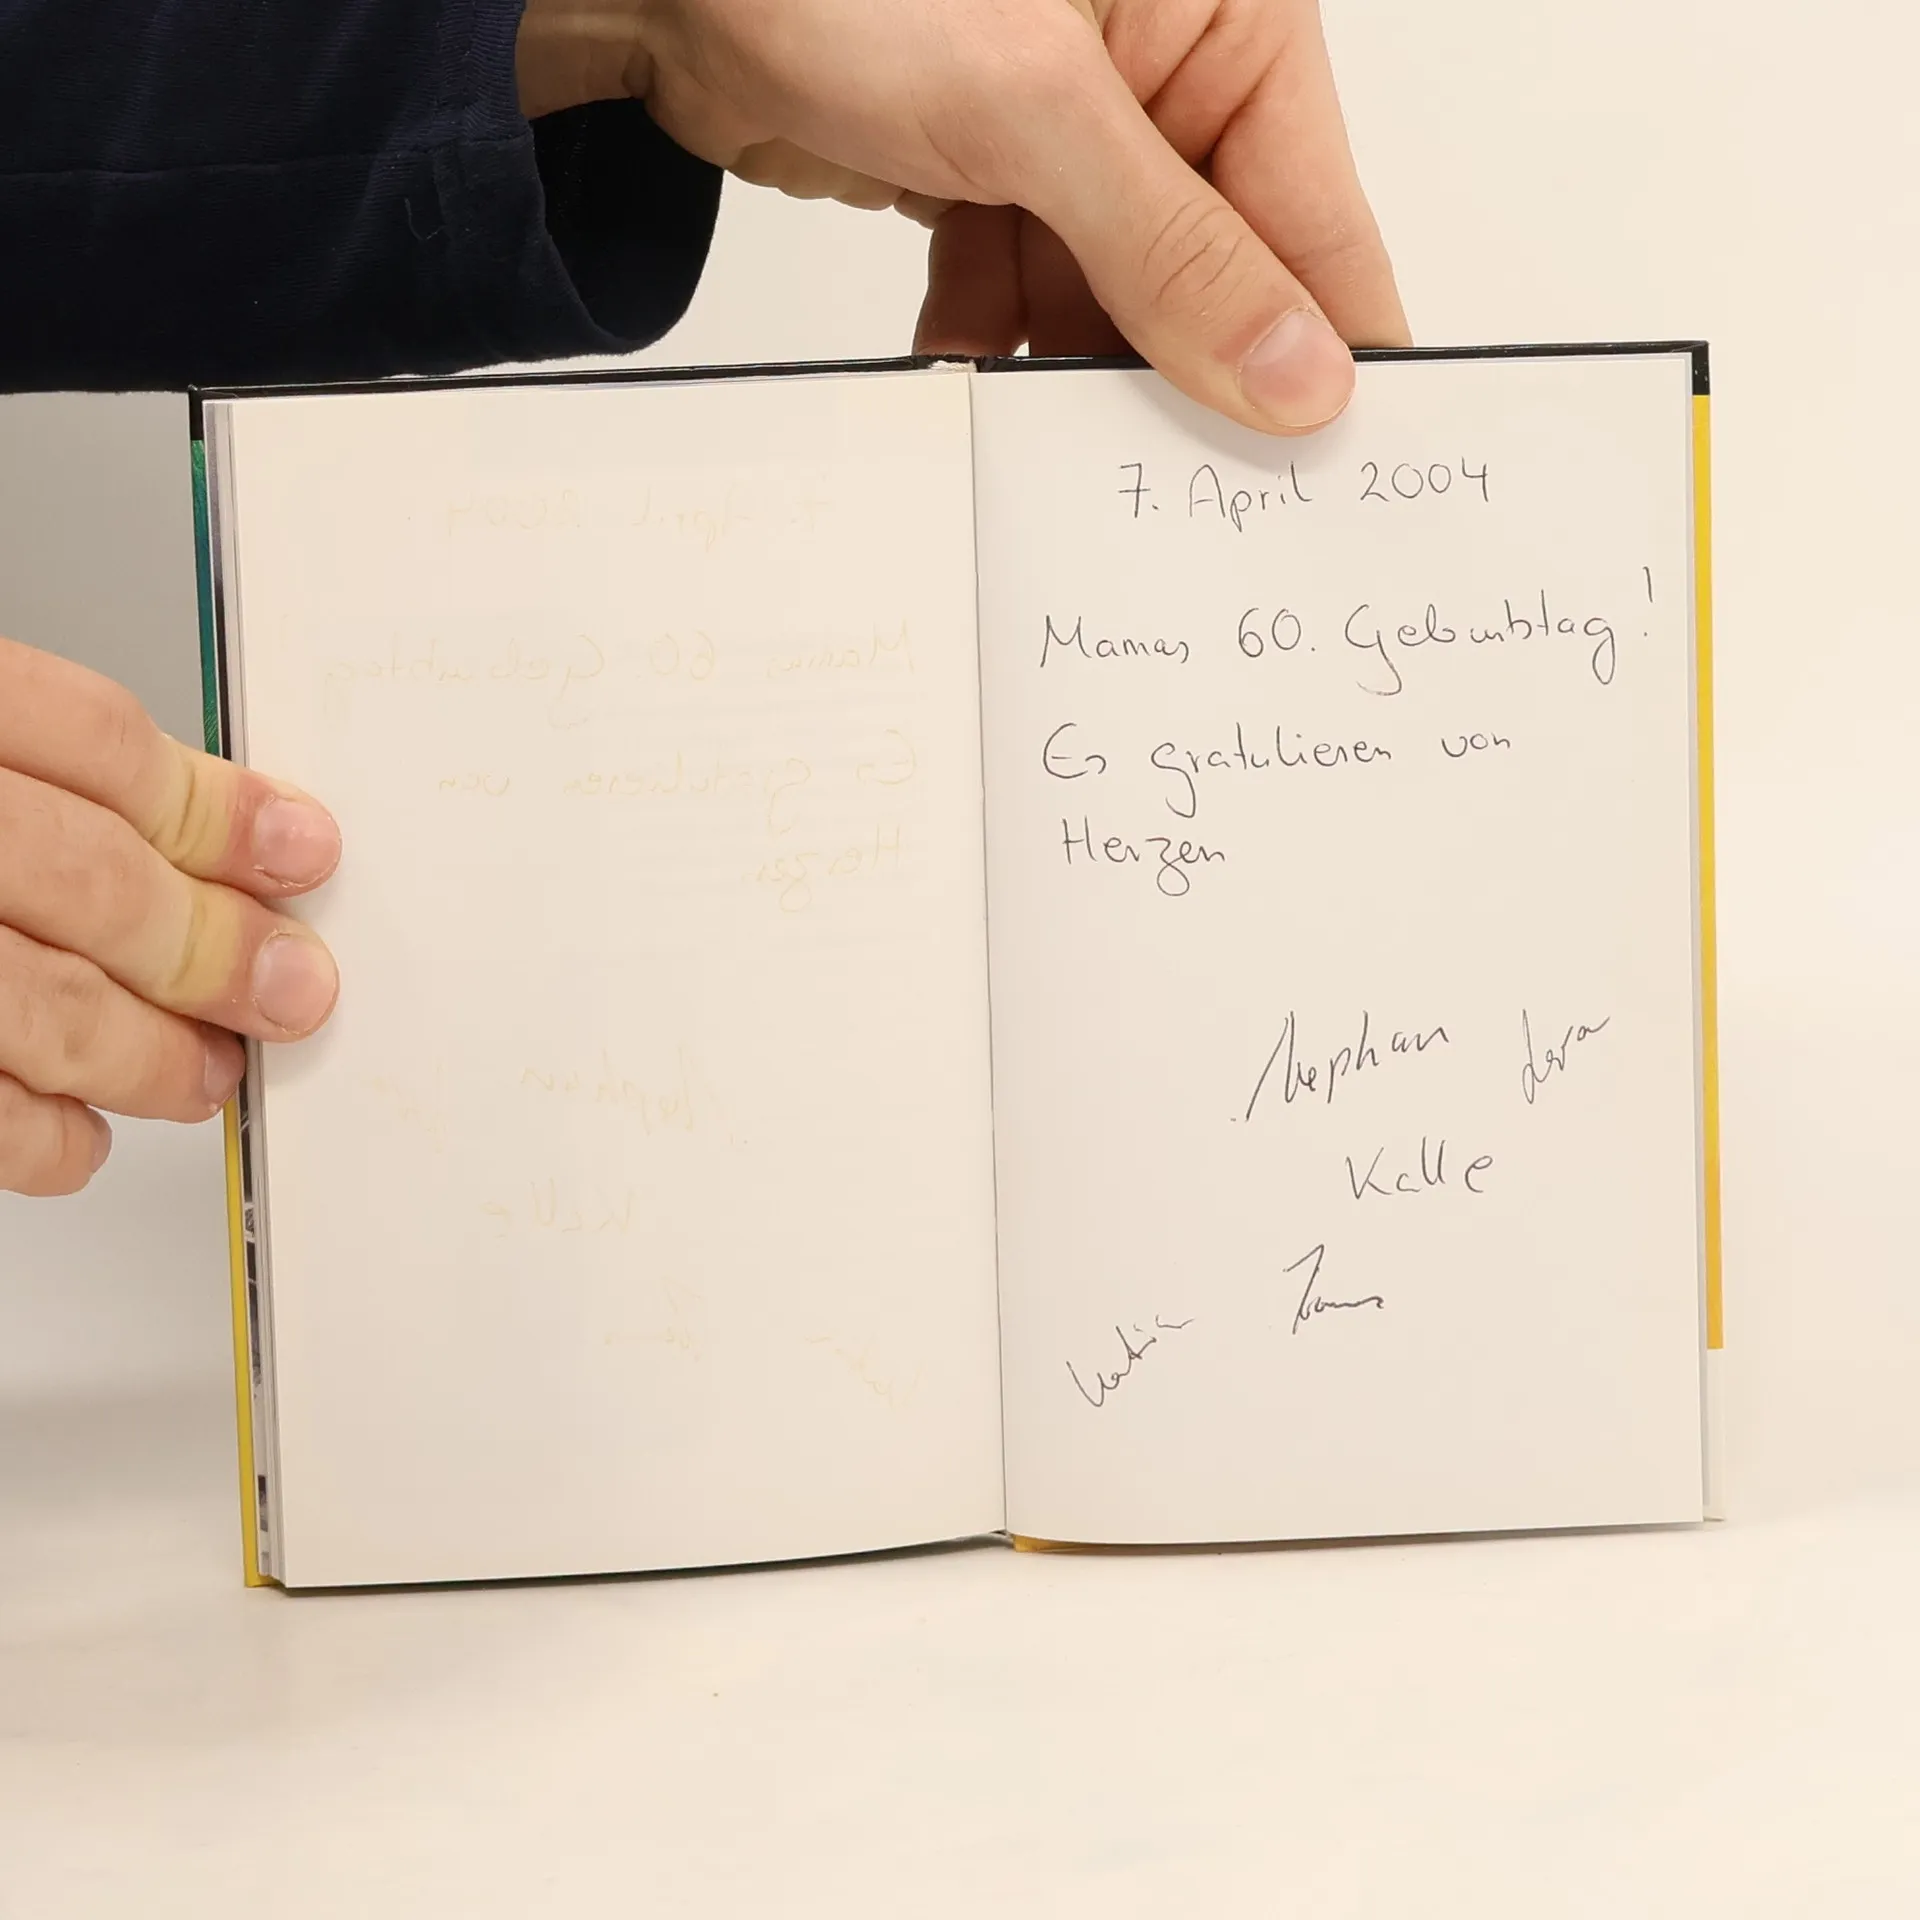 7. April 2004
Mamas 60. Geburtstag!
Es gratulieren von
Herzen
Stephan
Kalle